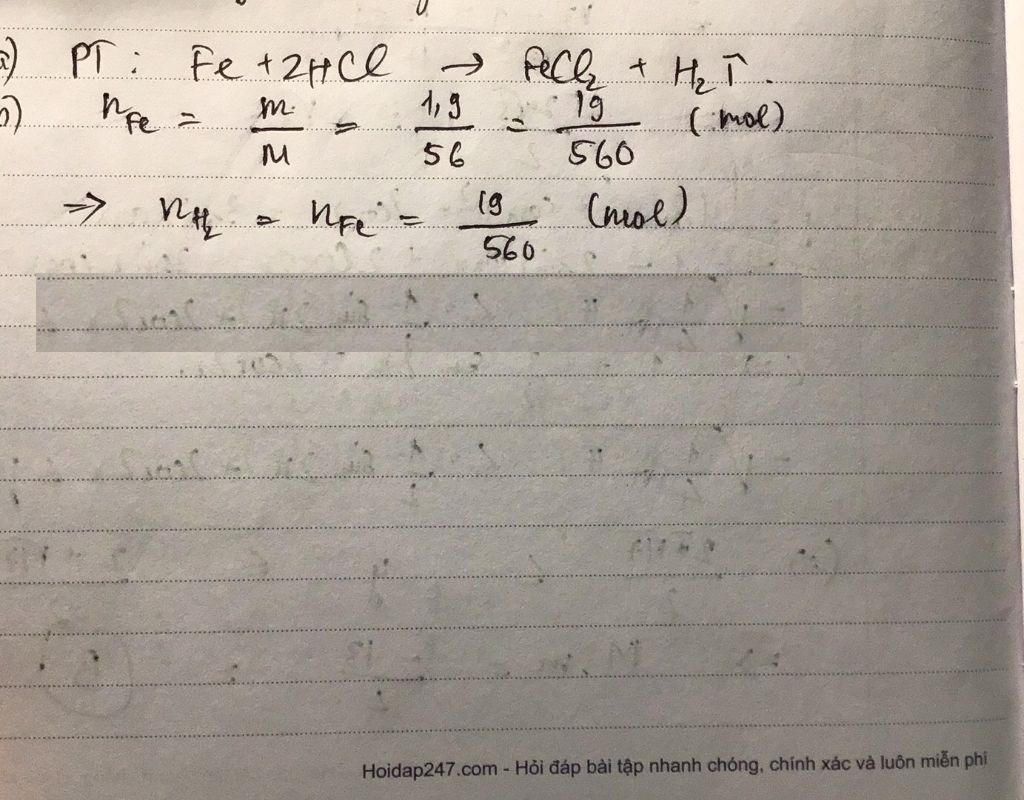 a) PT: Fe + 2HCl → FeCl₂ + H₂↑.
b) n_Fe = m/M = 1,9/56 = 19/560 (mol)
⇒ n_H₂ = n_Fe = 19/560 (mol)
Hoidap247.com - Hỏi đáp bài tập nhanh chóng, chính xác và luôn miễn phí